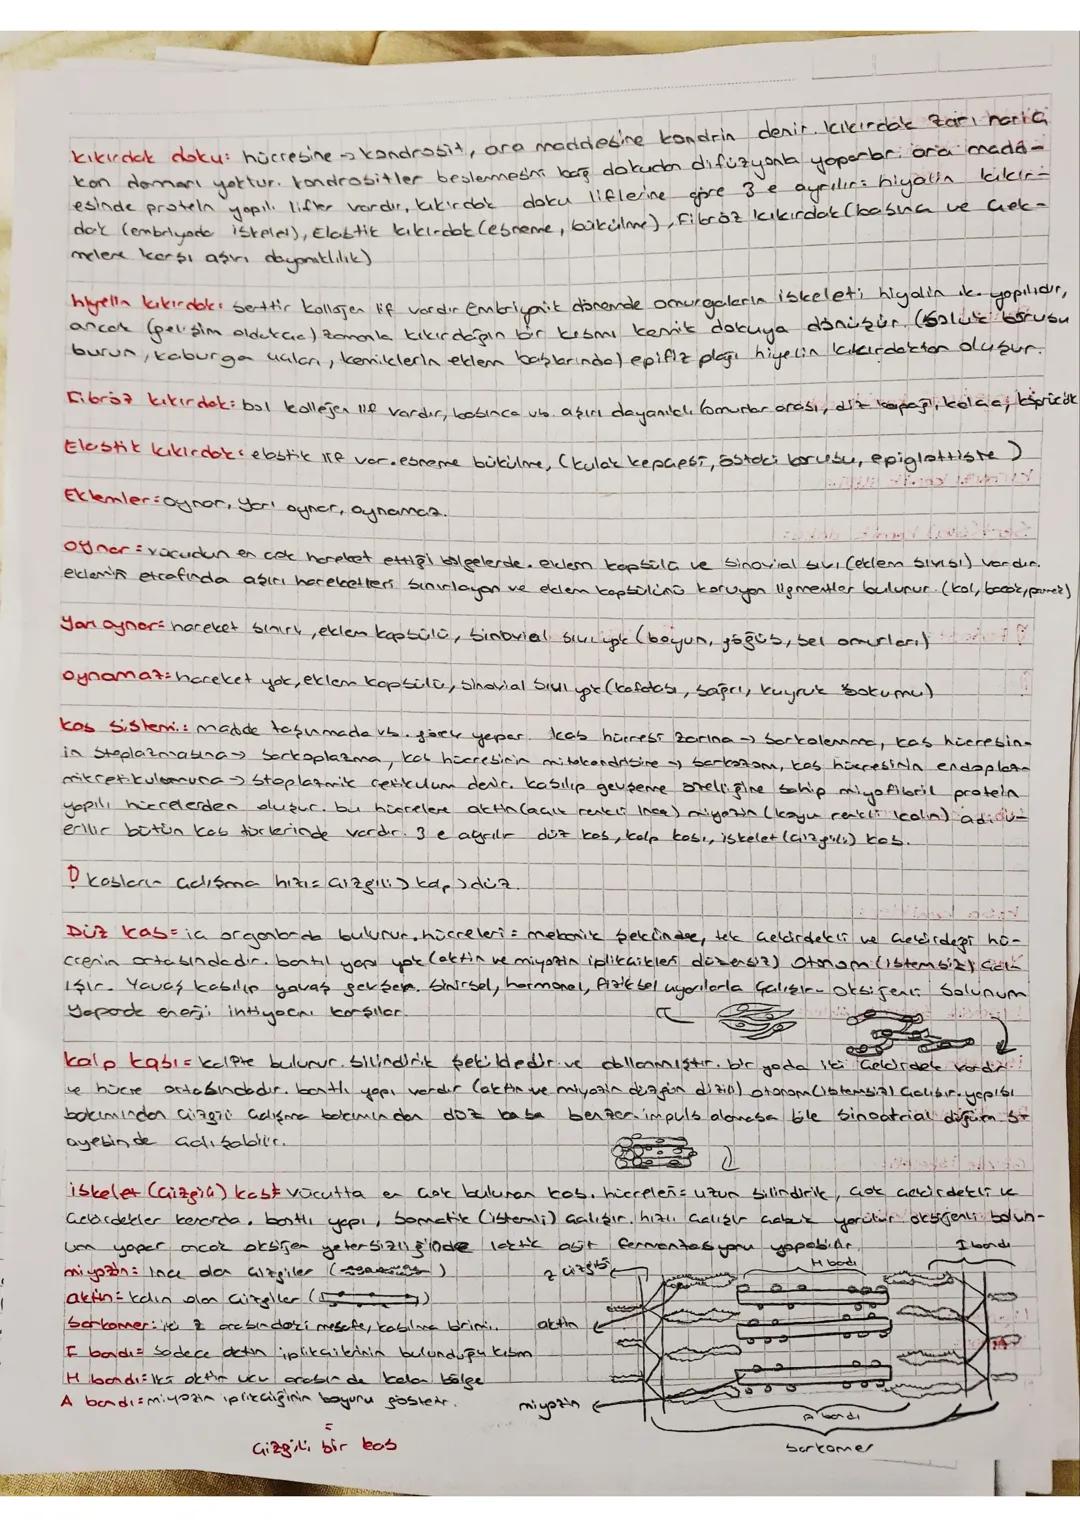 kıkırdak doku: hücresine → kondrosit, ara maddesine kondrin denir. kıkırdak zarı hariç
kan damarı yoktur. kondrositler beslenmesini bağ dokudan difüzyonla yaparlar. ara madd-
esinde protein yapılı lifler vardır, kıkırdak doku liflerine göre 3 e ayrılır: hiyalin kıkır-
dak (embriyoda iskelet), Elastik kıkırdak (esneme, bükülme), Fibröz kıkırdak (basınca ve çek-
melere karşı aşırı dayanıklılık)
hiyelin kıkırdak: serttir kollojen lif vardır Embriyonik dönemde omurgalıların iskeleti hiyalin k. yapılıdır,
ancak (gelişim oldukça) zamanla kıkırdağın bir kısmı kemik dokuya dönüşür. (soluk borusu
burun, kaburga uçları, kemiklerin eklem başlarında) epifiz plağı hiyelin kıkırdaktan oluşur.
Fibröz kıkırdak: bol kollejen lif vardır, basınca vb. aşırı dayanıklı (omurlar arası, diz kapağı, kalça, köprücük
Elastik kıkırdak: elastik lif var. esneme bükülme, (kulak kepçesi, östaki borusu, epiglottiste)
Eklemler: oynar, yarı oynar, oynamaz.
oynar: vücudun en çok hareket ettiği bölgelerde. eklem kapsülü ve Sinovial sıvı (eklem sıvısı) vardır.
eklemin etrafında aşırı hareketleri sınırlayan ve eklem kapsülünü koruyan ligmentler bulunur. (kol, bacak, parmak)
Yarı oynar: hareket sınırlı, eklem kapsülü, Sinovial sıvı yok (boyun, göğüs, bel omurları)
oynamaz: hareket yok, eklem kapsülü, sinovial sıvı yok (kafatası, sağrı, kuyruk sokumu)
kas sistemi: madde taşınmada vb. görev yapar. kas hücresi zarına → Sarkolemma, kas hücresin-
in stoplazmasına → sarkoplazma, kas hücresinin mitokondrisine → sarkozom, kas hücresinin endoplaz-
mikretikulumuna → stoplazmik retikulum denir. kasılıp gevşeme özelliğine sahip miyofibril protein
yapılı hücrelerden oluşur. bu hücrelere aktin (açık renkli ince) miyozin (koyu renkli kalın) adı v-
erilir bütün kas türlerinde vardır. 3 e ayrılır düz kas, kalp kası, iskelet (çizgili) kas.
! kasların çalışma hızı = çizgili > kalp > düz.
Düz kas = iç organlarda bulunur. hücreleri = mekanik şeklinde, tek çekirdekli ve çekirdeği hü-
crenin ortasındadır. bantlı yapı yok (aktin ve miyozin iplikçikleri düzensiz) otonom (istemsiz) çal-
ışır. Yavaş kasılıp yavaş gevşer. Sinirsel, hormonal, fiziksel uyarılarla çalışır. Oksijenli Solunum
Yaparak enerji ihtiyacını karşılar.
kalp kası = kalpte bulunur. silindirik şekildedir ve dallanmıştır. bir yada iki çekirdek vardır
ve hücre ortasındadır. bantlı yapı vardır (aktin ve miyozin düzgün dizili) otonom (istemsiz) çalışır. yapısı
bakımından çizgili çalışma bakımından düz kasa benzer. impuls almasa bile sinoatrial düğüm s-
ayesinde çalışabilir.
iskelet (çizgili) kas = vücutta en çok bulunan kas. hücreleri = uzun silindirik, çok çekirdekli ve
çekirdekler kenarda. bantlı yapı, Somatik (istemli) çalışır. hızlı çalışır çabuk yorulur. oksijenli solun-
um yapar ancak oksijen yetersizliğinde laktik asit fermentasyonu yapabilir.
miyozin: ince olan çizgiler ( )
aktin = kalın olan çizgiler ( )
Sarkomer: iki z arasındaki mesafe, kasılma birimi.
I bandı = sadece aktin iplikçiklerinin bulunduğu kısım
H bandı: iki aktin ucu arasında kalan bölge
A bandı = miyozin iplikçiğinin boyunu gösterir.
z çizgisi
H bandı
I bandı
aktin
miyozin
A bandı
sarkomer
= çizgili bir kas